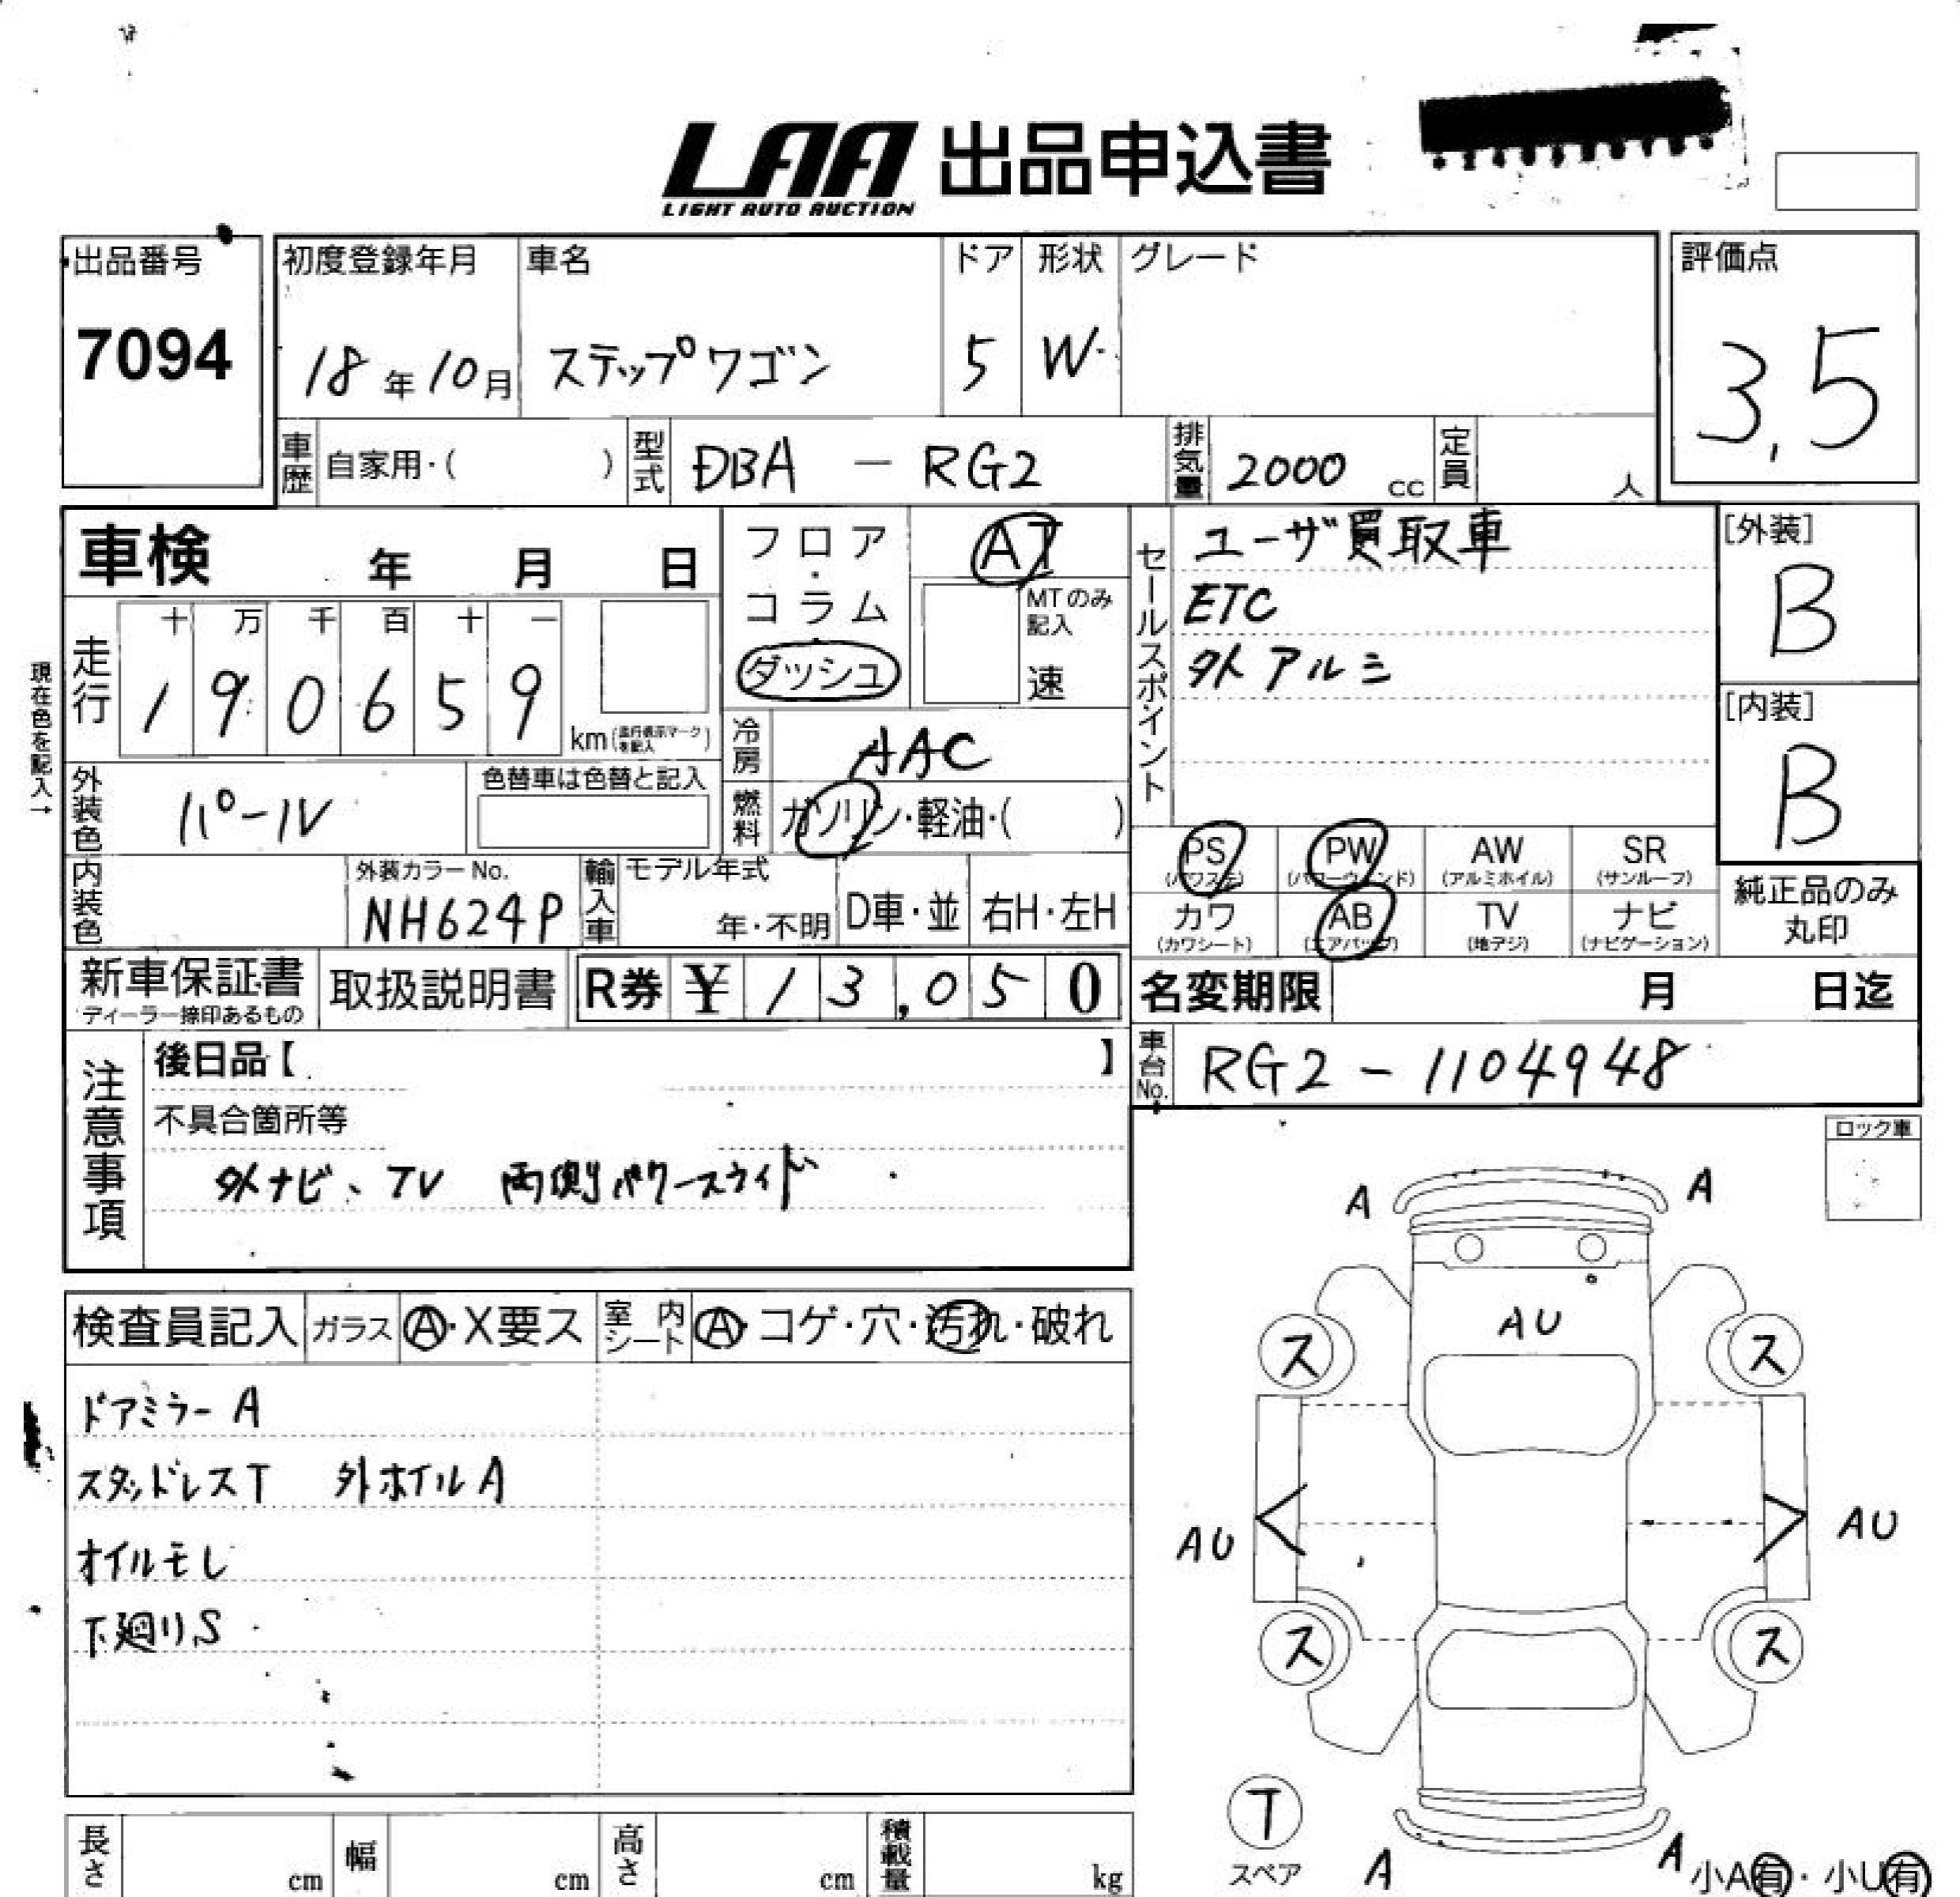 LAA 出品申込書
LIGHT AUTO AUCTION
出品番号
7094
初度登録年月
18年10月
車名
ステップワゴン
ドア
5
形状
W
グレード
評価点
3.5
車歴 自家用・( )
型式 DBA - RG2
排気量 2000 cc
定員 人
車検 年 月 日
フロア・コラム・ダッシュ
AT
MTのみ記入
速
現在色を記入→
走行
十 万 千 百 十 一
1 9 0 6 5 9
km(走行表示マークを記入)
冷房 AAC
燃料 ガソリン・軽油・( )
外装色 パール
色替車は色替と記入
内装色
外装カラーNo.
NH624P
輸入車
モデル年式
年・不明
D車・並
右H・左H
セールスポイント
ユーザ買取車
ETC
外アルミ
[外装]
B
[内装]
B
PS (パワステ)
PW (パワーウィンド)
AW (アルミホイル)
SR (サンルーフ)
カワ (カワシート)
AB (エアバッグ)
TV (地デジ)
ナビ (ナビゲーション)
純正品のみ
丸印
新車保証書
ディーラー捺印あるもの
取扱説明書
R券 ¥ 13,050
名変期限 月 日迄
車台No. RG2-1104948
注意事項
後日品【 】
不具合箇所等
外ナビ、TV 両側パワースライド
ロック車
検査員記入
ガラス Ⓐ・X要ス
室内シート Ⓐ・コゲ・穴・汚れ・破れ
ドアミラーA
スタッドレスT 外ホイルA
オイルモレ
下廻りS
A A
AU
ス ス
< >
AU AU
ス ス
T
スペア
A A
小A有・小U有
長さ cm
幅 cm
高さ cm
積載量 kg